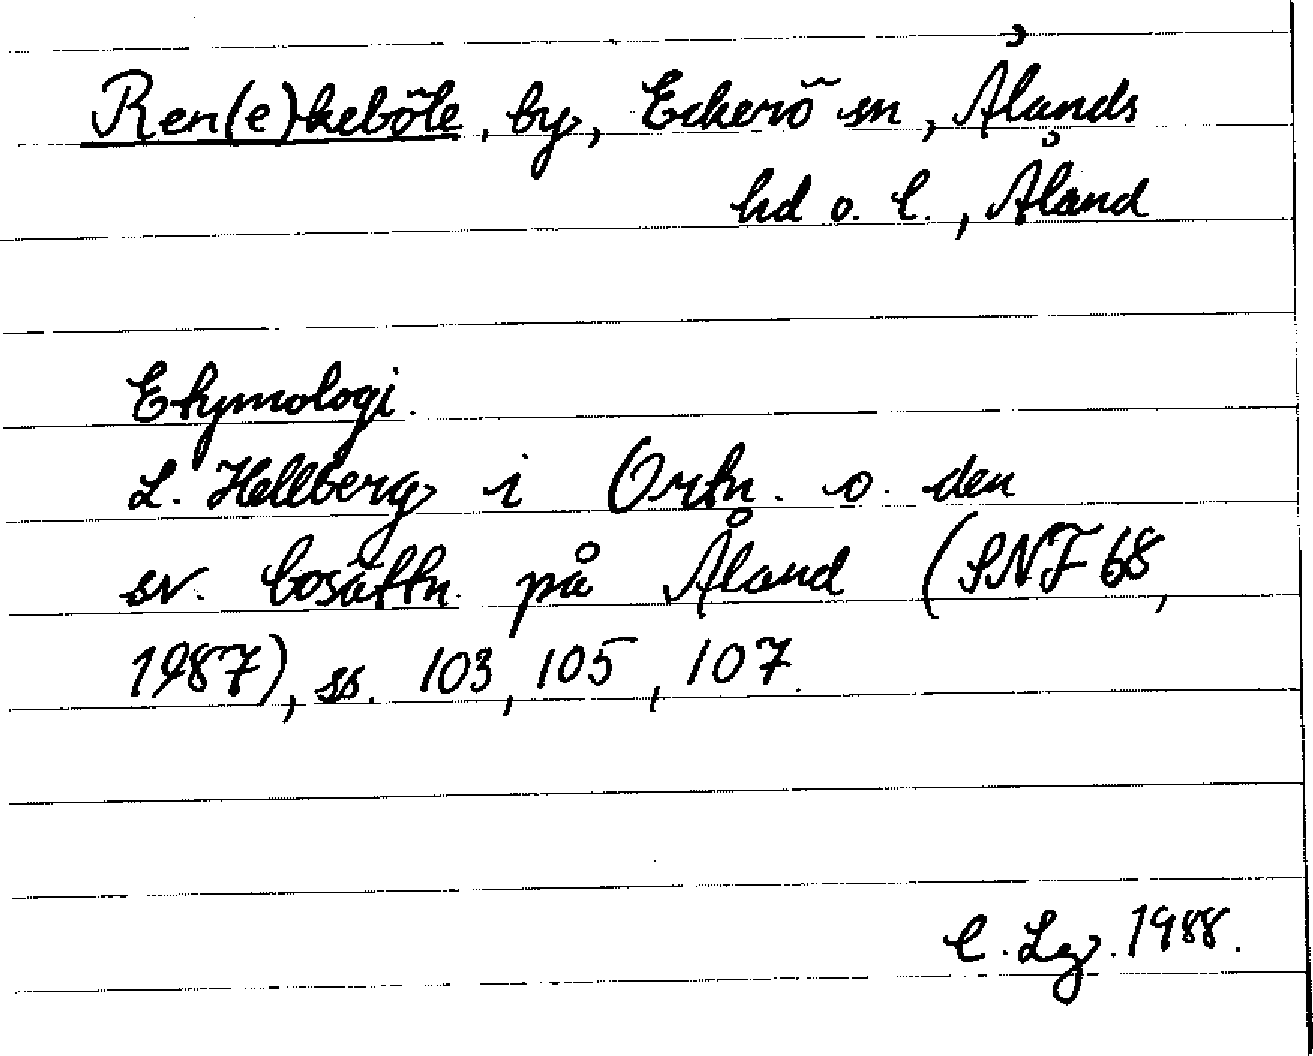 Ren(e)keböle, by, Eckerö sn, Ålands
hd o. l., Åland
Etymologi.
L. Hellberg i Ortn. o. den
sv. bosättn. på Åland (SNF 68,
1987), ss. 103, 105, 107.
C. Lg. 1988.